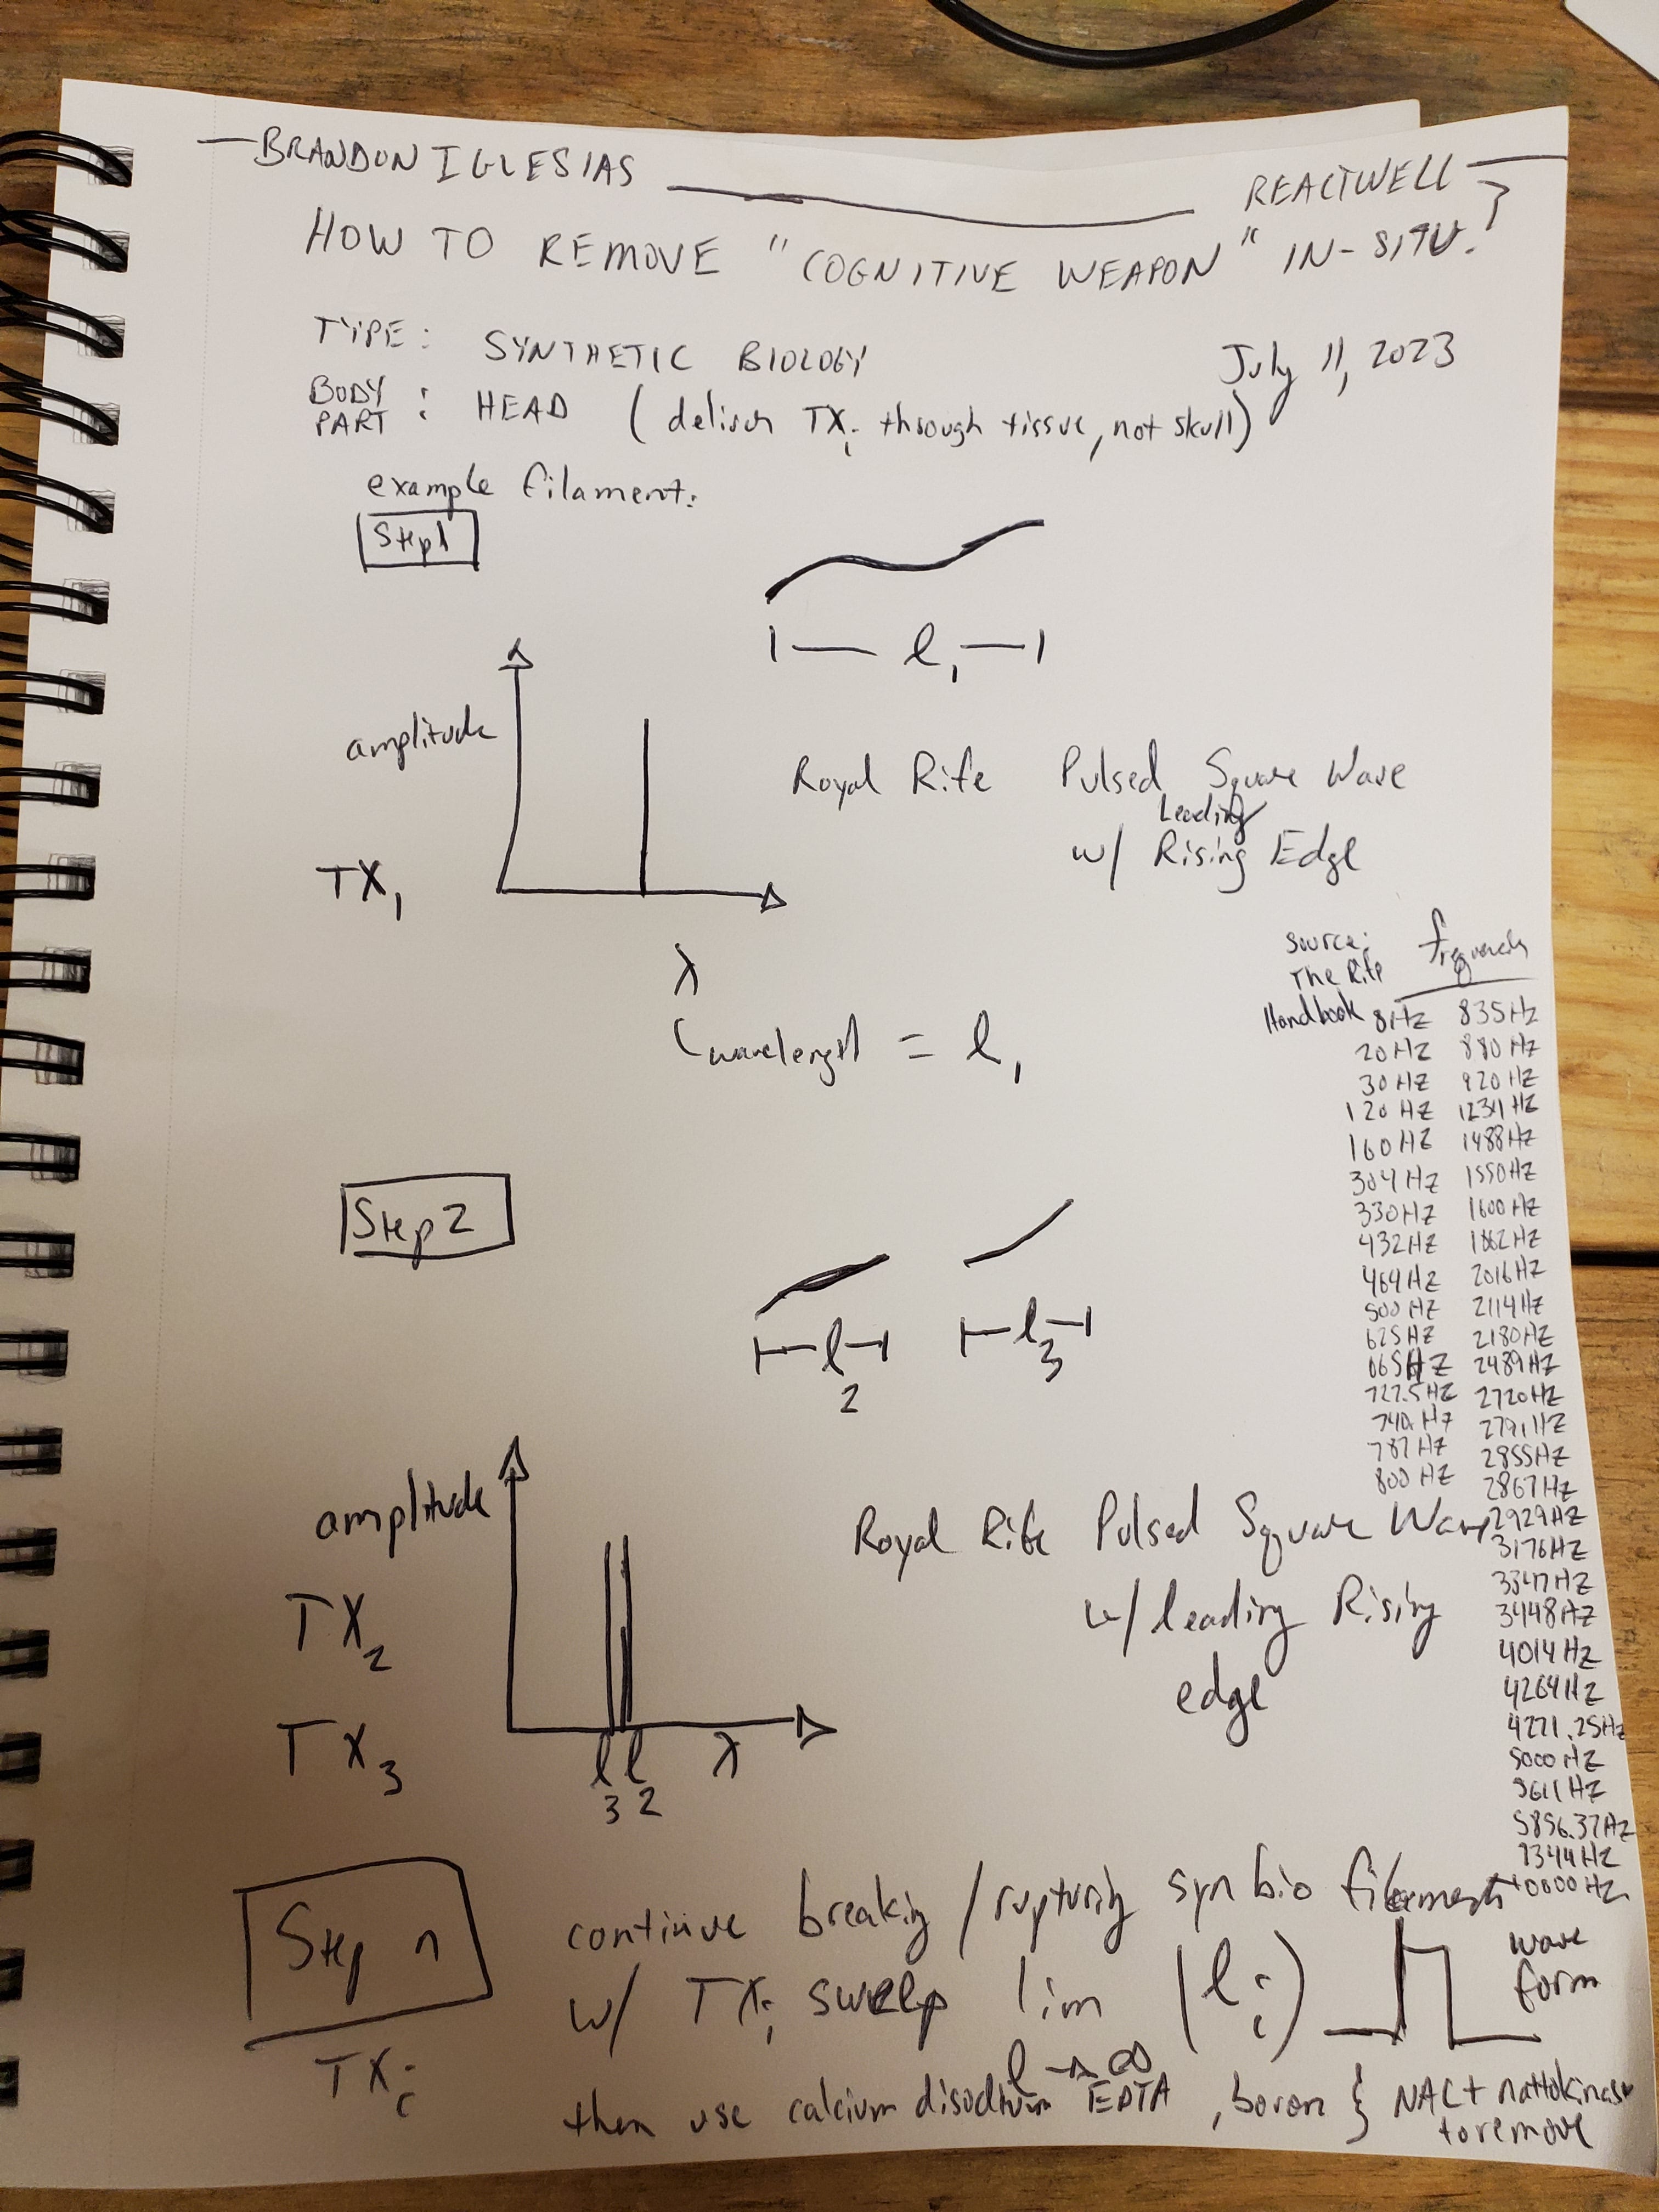 BRANDON IGLESIAS REACTWELL
HOW TO REMOVE "COGNITIVE WEAPON" IN-SITU?
TYPE: SYNTHETIC BIOLOGY July 11, 2023
BODY PART : HEAD (deliver TXi through tissue, not skull)
example filament:
Step 1
l1
amplitude
Royal Rife Pulsed Square Wave
Leading
w/ Rising Edge
TX1
λ
wavelength = l1
source: frequency
The Rife
Handbook 8Hz 835Hz
20Hz 880Hz
30Hz 920Hz
120Hz 1234Hz
160Hz 1488Hz
304Hz 1550Hz
330Hz 1600Hz
432Hz 1862Hz
464Hz 2016Hz
500Hz 2114Hz
625Hz 2180Hz
665Hz 2489Hz
727.5Hz 2720Hz
740Hz 2791Hz
787Hz 2855Hz
800Hz 2867Hz
2929Hz
3176Hz
3347Hz
3448Hz
4014Hz
4264Hz
4221.25Hz
5000Hz
5611Hz
5856.37Hz
9344Hz
10000Hz
Step 2
l2 l3
amplitude
Royal Rife Pulsed Square Wave
w/ leading Rising
edge
TX2
TX3
l3 l2 λ
Step n
TXi
continue breaking/rupturing syn bio filaments
w/ TXi sweep lim (li)
l → ∞
wave
form
then use calcium disodium EDTA, boron & NAC + nattokinase
to remove